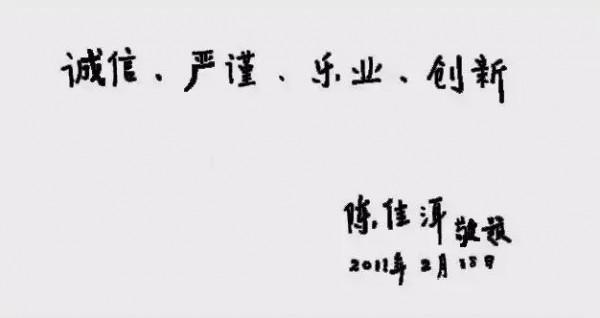 诚信、严谨、乐业、创新
陈佳洱敬题
2011年2月18日